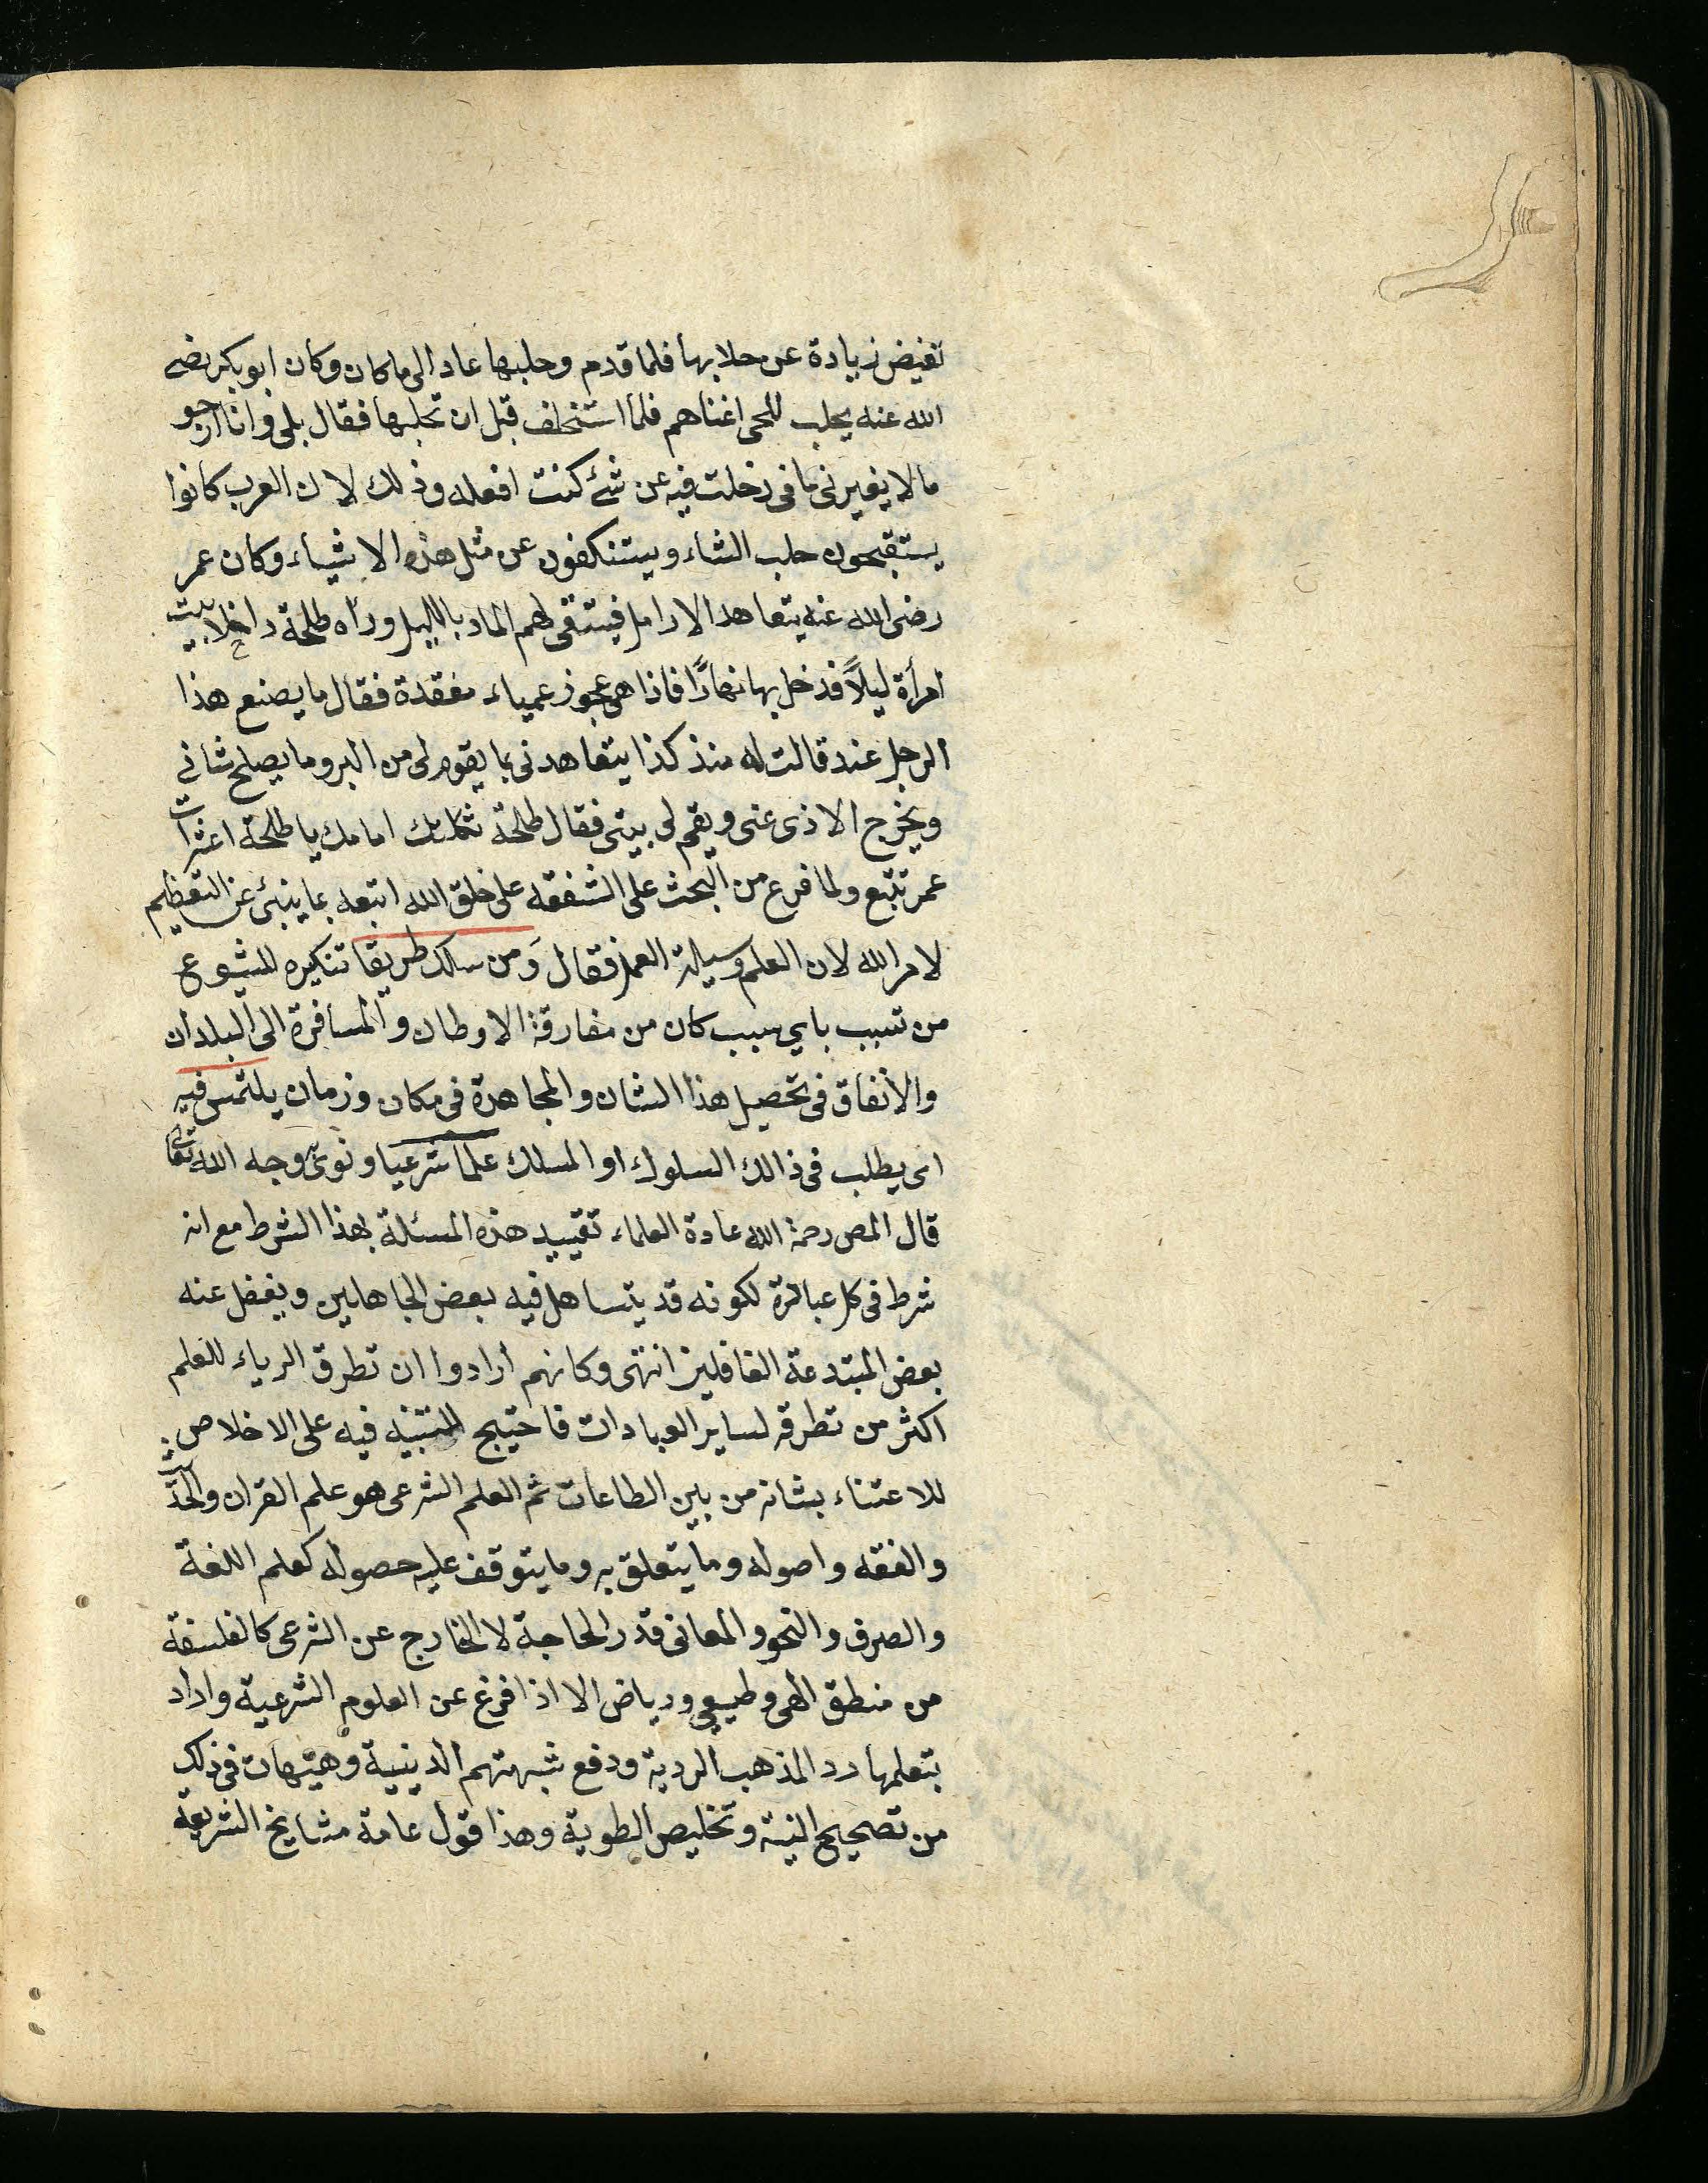 تفيض زيادة عن حلابها فلما قدم وحلبها عاد الى ما كان وكان ابو بكر رضى
الله عنه يحلب للحى اغناهم فلما استخلف قبل ان تحلبها فقال بلى وانا ارجو
ما لا يغيرنى ما فى دخلت فيه عن شئ كنت افعله وذلك لان العرب كانوا
يستقبحون حلب الشاء ويستنكفون عن مثل هذه الاشياء وكان عمر
رضى الله عنه يتعاهد الارامل فيستقى لهم الماء بالليل ورآه طلحة داخلا بيت
امرأة ليلاً فدخل بها نهارًا فاذا هى عجوز عمياء مقعدة فقال ما يصنع هذا
الرجل عندك قالت له منذ كذا يتعاهدنى بما يقوم لى من البر وما يصلح شانى
ويخرج الاذى عنى ويقم لى بيتى فقال طلحة ثكلتك امامك يا طلحة اعثرات
عمر تتبع ولما فرغ من البحث على الشفقه على خلق الله اتبعه بما ينبئ عن التعظيم
لامر الله لان العلم وسيلة العمل فقال وَمن سلك طريقا تنكيره للشيوع
من تسبب باي سبب كان من مفارقة الاوطان والمسافرة الى البلدان
والانفاق فى تحصيل هذا الشان والمجاهدة فى مكان وزمان يلتمس فيه
اى يطلب فى ذالك السلوك او المسلك علما شرعيا ونوى وجه الله تعالى
قال المص رحمة الله عادة العلماء تقييد هذه المسئلة بهذا الشرط مع انه
شرط فى كل عبادة لكونه قد يتساهل فيه بعض الجاهلين ويغفل عنه
بعض المبتدعة الغافلين انتهى وكانهم ارادوا ان تطرق الرياء للعلم
اكثر من تطرقه لساير العبادات فاحتيج للتنبيه فيه على الاخلاص
للاعتناء بشانه من بين الطاعات ثم العلم الشرعى هو علم القران والحديث
والفقه واصوله وما يتعلق به وما يتوقف عليه حصوله كعلم اللغة
والصرف والنحو والمعانى قدر الحاجة لا الخارج عن الشرعى كالفلسفة
من منطق الهى وطبيعى ورياض الا اذا فرغ عن العلوم الشرعية واراد
بتعلمها رد المذهب الردية ودفع شبهتهم الدينية وهيهات فى ذلك
من تصحيح النية وتخليص الطوية وهذا قول عامة مشايخ الشريعة